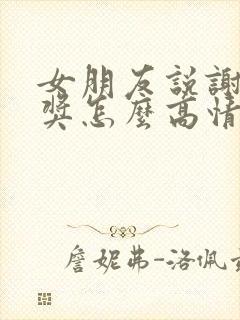 女朋友説謝
獎怎麼高情
詹妮弗-洛佩